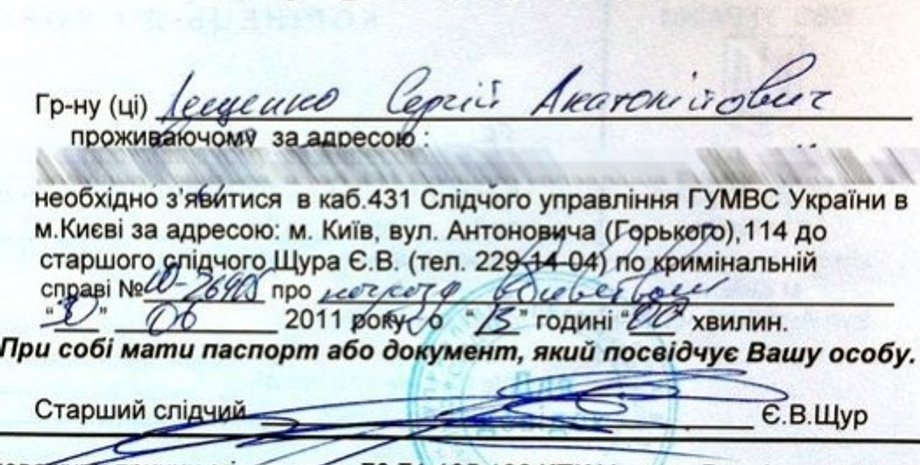 Гр-ну (ці) Лещенко Сергій Анатолійович
проживаючому за адресою :
необхідно з’явитися в каб.431 Слідчого управління ГУМВС України в
м.Києві за адресою: м. Київ, вул. Антоновича (Горького),114 до
старшого слідчого Щура Є.В. (тел. 229-14-04) по кримінальній
справі № 10-26905 про погрозу вбивством
“30” 06 2011 року о “13” годині “00” хвилин.
При собі мати паспорт або документ, який посвідчує Вашу особу.
Старший слідчий Є.В.Щур